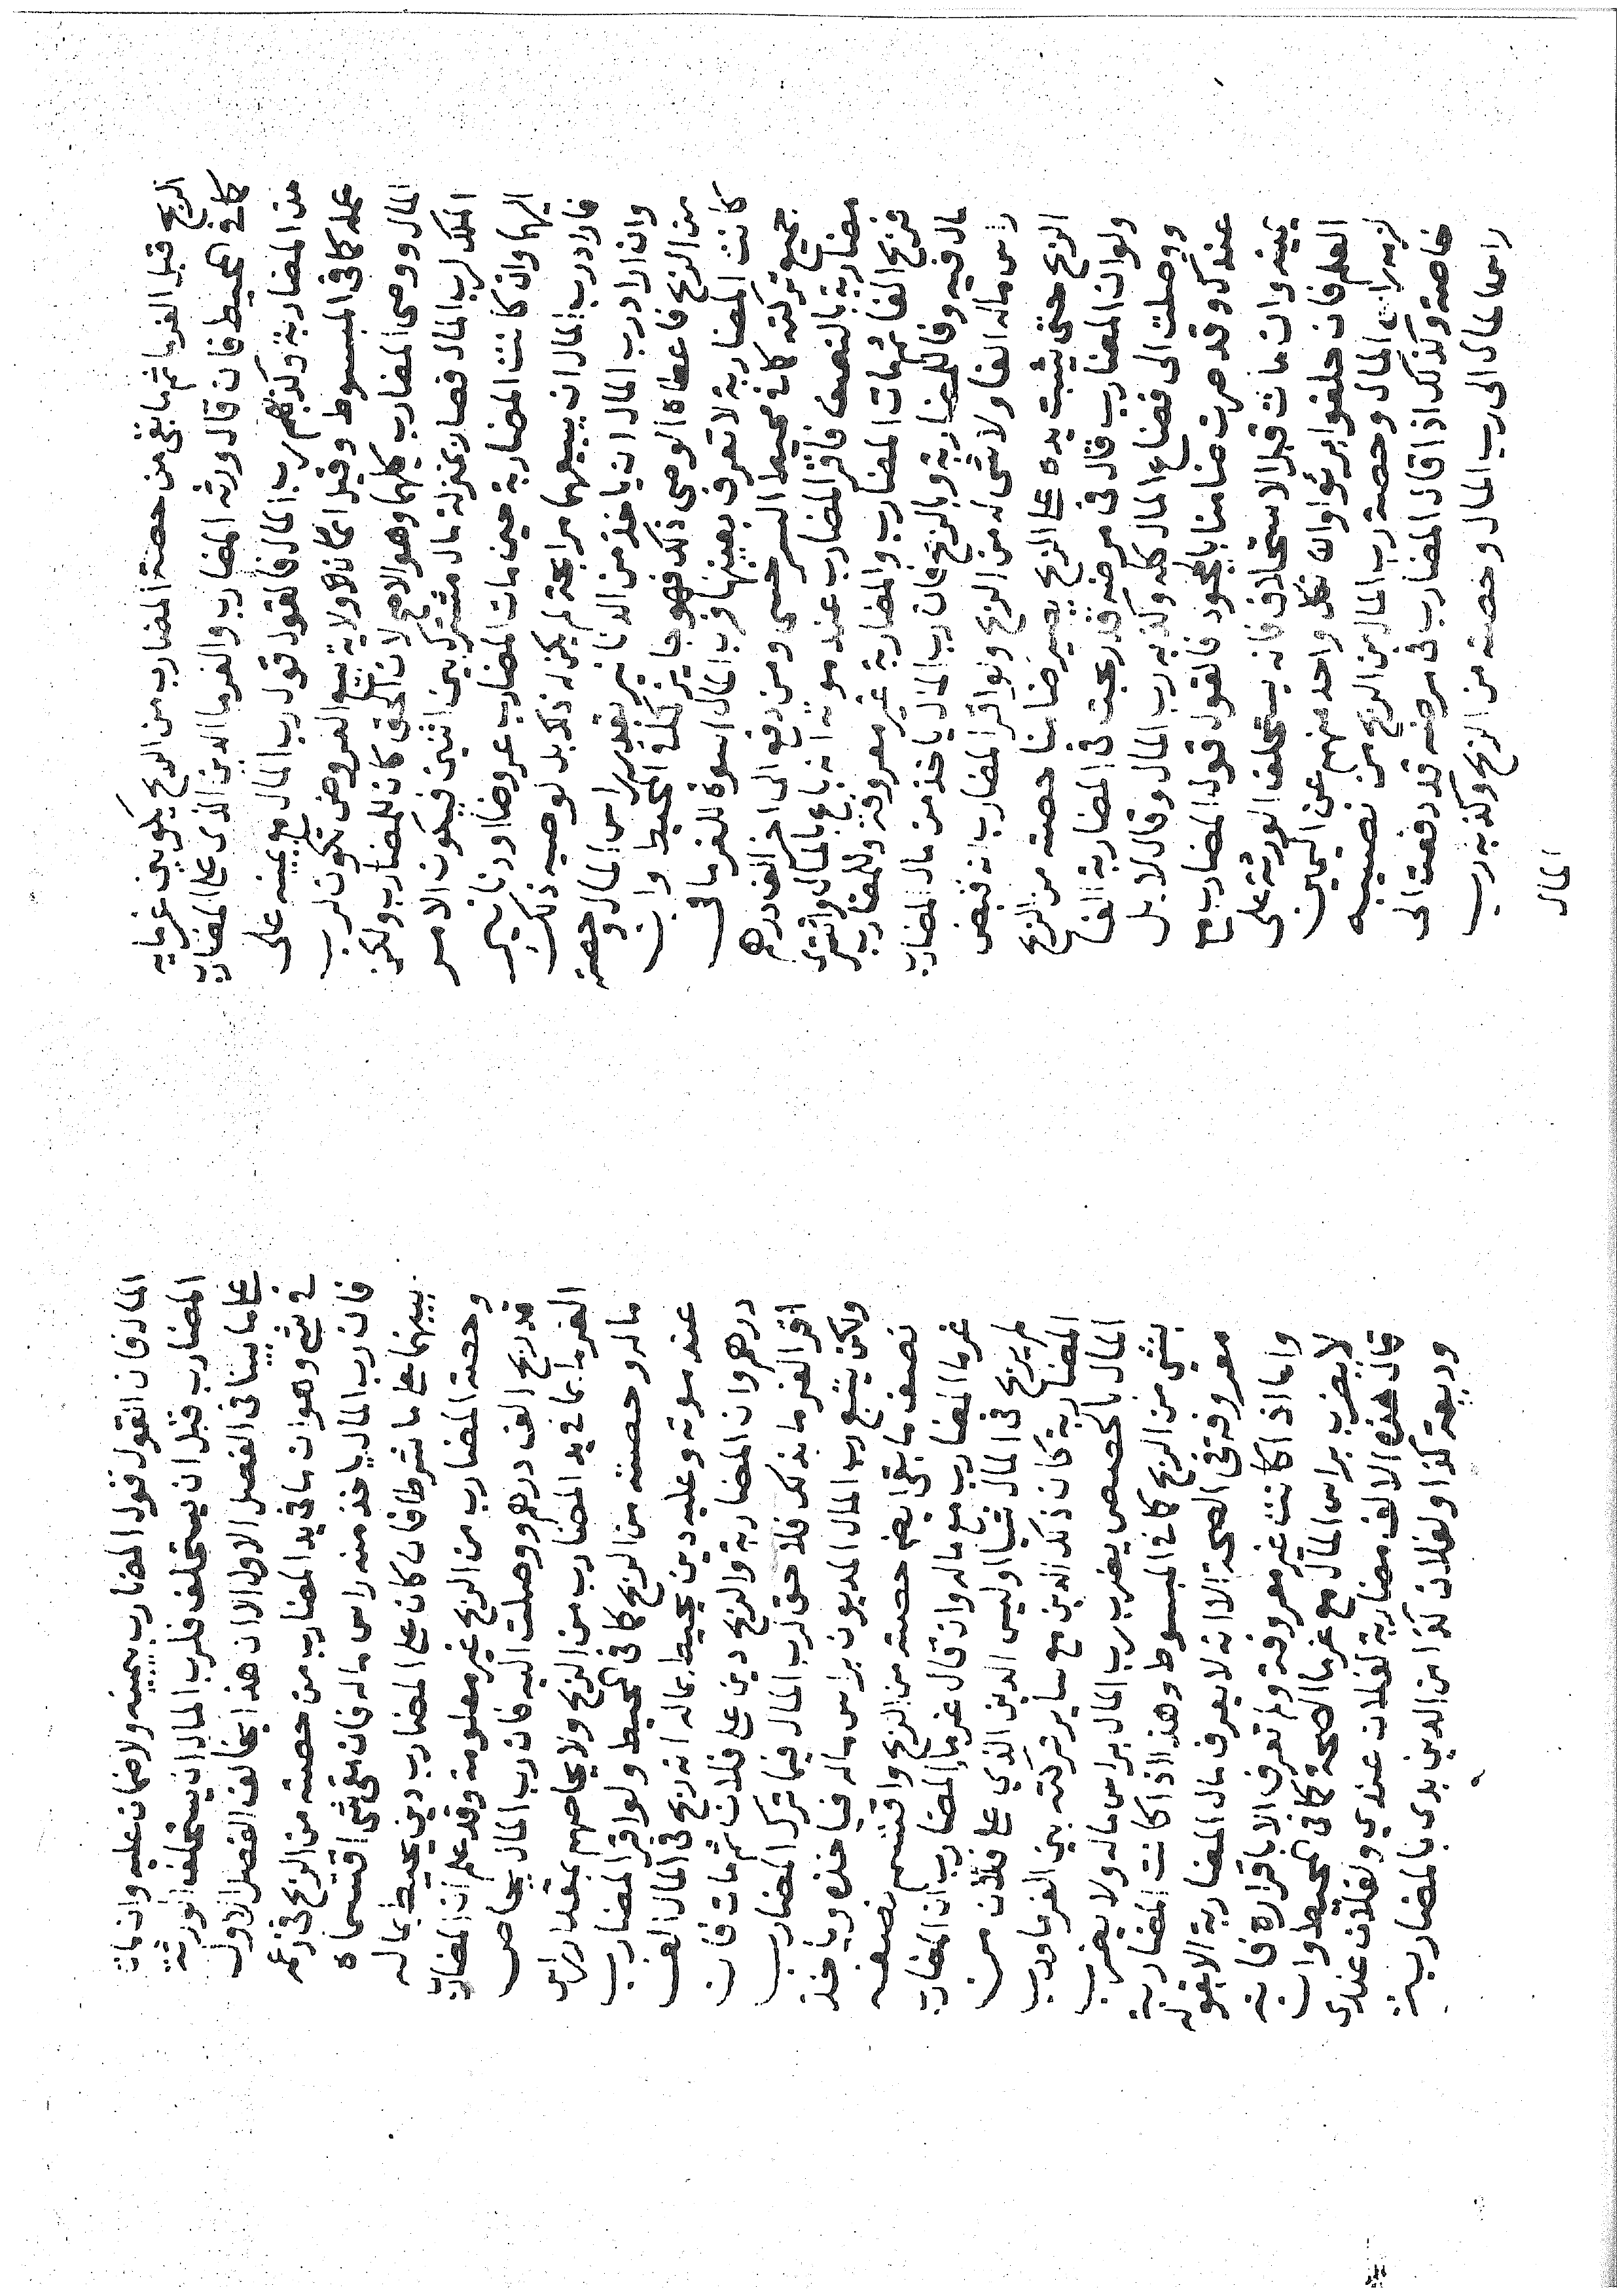 الربح قبل الغرما ثم ما بقى من حصة المضارب من الربح يكون بين غرمايه
كما في المحيط فان قال ورثه المضارب والغرما الدين الذى على المضارب
من المضاربة وكذبهم رب المال فالقول قول رب المال مع يمينه على
علمه كما فى المبسوط وقيل ان كان ولاية بيع العروض تكون لرب
المال ووصى المضارب كلهما وهو الاصح لان الحق كان للمضارب ولكن
الملك لرب المال فصار بمنزلة مال مشترك بين اثنين فيكون الامر
اليهما وان كانت المضاربة حين مات المضارب عروضا او دنانير
فاراد رب المال ان يبيعهما مرابحة لم يكن له ذلك بل لوصيه ذلك
وان اراد رب المال ان ياخذ من الدنانير بقدر راس المال وحصته
من الربح فاعطاه الوصى ذلك فهو جايز كذا في المحيط وان
كانت المضاربة لا تعرف بعينها فرب المال اسوة للغرما فى
جميع تركته كما فى محيط السرخسى ومن دفع الى اخر الف درهم
مضاربة بالنصف فاقر المضارب عند موته انه باع بالمال واشترى
فربح الفا ثم مات المضارب والمضاربة غير معروفة وللمضارب
مال فيه وفا للمضاربة وبالربح فان رب المال ياخذ من مال المضارب
راس ماله الفا ولا شى له من الربح ولو اقر المضارب انه قبض
الربح حتى يثبت يده على الربح يصير ضامنا حصته من الربح
ولو ان المضارب قال فى مرضه قد ربحت فى المضاربة الفا
ووصلت الى فضاع المال كله وكذبه رب المال وقال لا بل
عندك وقد صرت ضامنا بالجحود فالقول قول المضارب مع
يمينه وان مات قبل الاستحلاف فانه يستحلف الورثة على
العلم فان حلفوا برئوا وان نكل واحد منهم عن اليمين
لزمه راس المال وحصة رب المال من الربح من نصيبه
خاصة وكذلك اذا قال المضارب فى مرضه قد دفعت الى
راس المال الى رب المال وحصته من الربح وكذبه رب
المال
المال فان القول قول المضارب بيمينه ولا ضمان عليه وان مات
المضارب قبل ان يستحلف فلرب المال ان يستحلف الورثة
على ما بينا فى الفصل الاول الا ان هذا يخالف الفصل الاول
في شى وهو ان ما فى يد المضارب من حصته من الربح فى زعمه
فان رب المال ياخذ منه راس ماله فان بقى شى اقتسماه
بينهما على ما شرطا فان كان على المضارب دين يحيط بماله
وحصة المضارب من الربح غير معلومة وقد علم ان المضارب
قد ربح الف درهم ووصلت اليه فان رب المال يحاص
الغرما بما فى يد المضارب من الربح ولا يحاصهم بمقدار راس
ماله وحصته من الربح كما فى المحيط ولو اقر المضارب
عند موته وعليه دين يحيط بماله انه ربح فى المال الف
درهم وان المضاربة والربح دين على فلان ثم مات فان
اقر الغرما بذلك فلا حق لرب المال فيما ترك المضارب
ولكن يتبع رب المال المديون براس ماله فياخذه وياخذ
نصف ما بقى ايضا حصته من الربح واقتسم نصفه
غرما المضارب مع ماله وان قال غرما المضارب ان المضارب
لم يربح فى المال شيا وليس الدين الذي على فلان من
المضاربة كان ذلك الدين مع ساير تركته بين الغرما ورب
المال بالحصص يضرب رب المال براس ماله ولا يضرب
بشى من الربح كما في المبسوط وهذا اذا كانت المضاربة
معروفة فى الصحة الا انه لا يعرف مال المضاربة الا بقوله
واما اذا كانت غير معروفة ولم تعرف الا باقراره فانه
لا يضرب براس المال مع غرما الصحة كما فى المحيط وان
قال هذه الالف مضاربة لفلان عندي ولفلان عندى
وديعة كذا ولفلان كذا من الدين بدى بالمضاربة